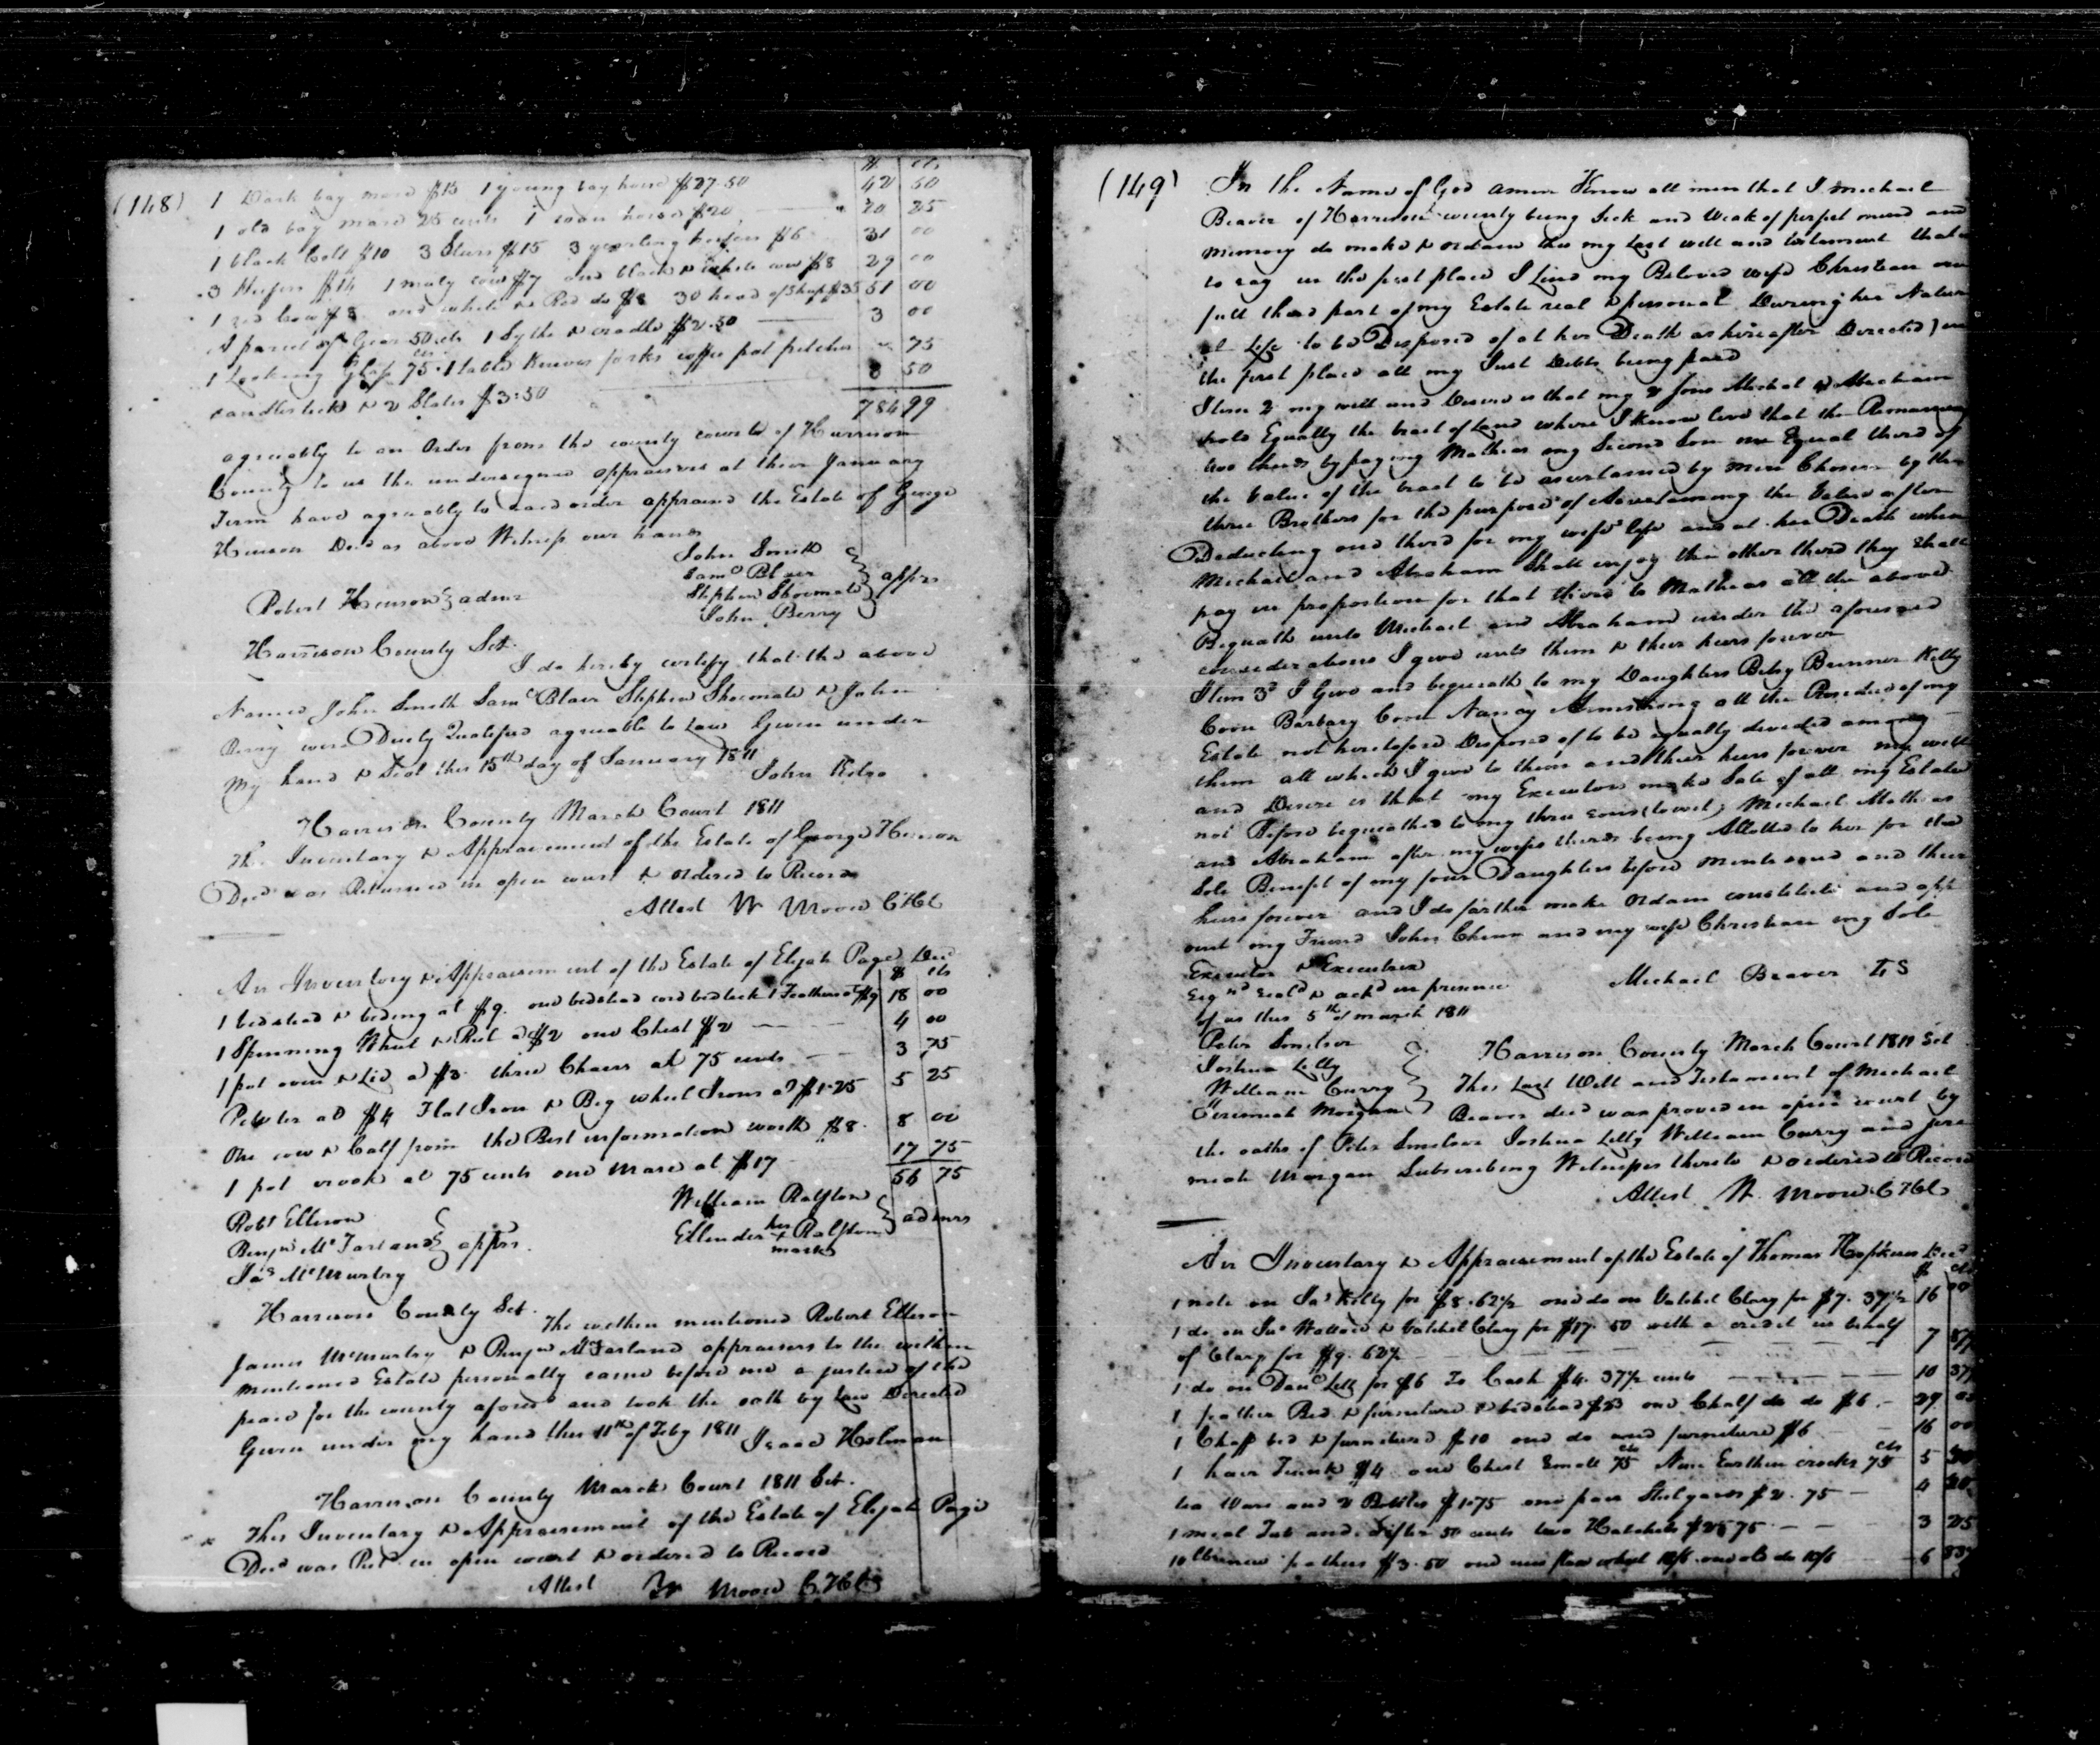 (148)
$ cts
1 Dark bay mare $15 1 young bay horse $27.50 42 50
1 old bay mare 25 cents 1 roan horse $20 20 25
1 black Colt $10 3 Stears $15 3 yearling heifers $6 31 00
3 Heifers $14 1 muly cow $7 one black & white cow $8 29 00
1 red Cow $8 one white & Red do $8 30 head of Sheep $35 51 00
A parcel of Gear 50 cts 1 Sythe & cradle $2.50 3 00
1 Looking Glass 75 cts 1 table Knives forks coffee pot pitcher " 75
candlestick & 2 Slates $3.50 3 50
784 99
agreeably to an Order from the county court of Harrison
County to us the undersigned appraisers at their January
Term have agreeably to said order appraised the Estate of George
Hinson Decd as above Witness our hands
John Smith
Saml Blair
Stephen Shoemate
John Berry
apprs
Robert Hinson admr
Harrison County Sct.
I do hereby certify that the above
Named John Smith Saml Blair Stephen Shoemate & John
Berry were Duely Qualifed agreeable to Law Given under
my hand & Seal this 15th day of January 1811
John Kelso
Harrison County March Court 1811
The Inventory & Appraisement of the Estate of George Hinson
Decd was Returned in open court & ordered to Record
Attest W Moore CHC
An Inventory & Appraisement of the Estate of Elijah Page Decd
$ cts
1 bedstead & beding at $9. one bedstead cord bedtick & Feathers at $9 18 00
1 Spinning Wheel & Reel at $2 one Chest $2 4 00
1 pot oven & Lid at $3. three Chears at 75 cents 3 75
Pewter at $4 Flat Iron & Big wheel Irons at $1.25 5 25
One cow & Calf from the Best information worth $8. 8 00
1 pot crook at 75 cents one Mare at $17 17 75
56 75
William Ralston
Ellender her X mark Ralston
admrs
Robt Ellison
Benjn McFarland
Jas McMurtry
apprs.
Harrison County Sct.
The within mentioned Robert Ellison
James McMurtry & Benjn McFarland appraisers to the within
mentioned Estate personally came before me a justice of the
peace for the county aforesd and took the oath by Law Directed
Given under my hand this 11th of Feby 1811
Isaac Holeman
Harrison County March Court 1811 Sct.
This Inventory & Appraisement of the Estate of Elijah Page
Decd was Retd in open court & ordered to Record
Attest W Moore CHC
(149)
In the Name of God amen Know all men that I michael
Beaver of Harrison county being Sick and Weak of perfect mind and
memory do make & ordain this my last will and testament that is
to say in the first place I Lend my Beloved wife Christian one
full third part of my Estate real & personal During her Natur
al Life to be Disposed of at her Death as hereafter Directed) in
the first place all my Just Debts being paid
Item 2 my will and Desire is that my 2 Sons Michal & Abraham
hold Equally the tract of Land where I know live that the Remaining
two thirds by paying Mathias my Second Son one Equal third of
the Value of the tract to be ascertained by men Chosen by the
three Brothers for the purpose of Ascertaining the Value after
Deducting one third for my wife's life and at her Death when
Michael and Abraham Shall enjoy the other third they Shall
pay in proportion for that third to Mathias all the above
Bequath unto Michael and Abraham under the aforesaid
considerations I give unto them & their heirs forever
Item 3d I Give and bequeath to my Daughters Betsy Brunner Kitty
Coon Barbary Coon Nancy Armstrong all the Residue of my
Estate not heretofore Disposed of to be equally devided among
them all which I give to them and their heirs forever my will
and Desire is that my Executors make Sale of all my Estate
not Before bequeathed to my three sons (towit) Michael Mathias
and Abraham after my wifes thirds being Allotted to her for the
Sole Benefit of my four Daughters before mentioned and their
heirs forever and I do farther make ordain constitute and app
oint my Friend John Chinn and my wife Christian my Sole
Executor & Executrix
Michael Beaver LS
Signd Seald & ackd in presence
of us this 5th of march 1811
Peter Smelser
Joshua Lilly
William Curry
Jeremiah Morgan
Harrison County March Court 1811 Sct
This Last Will and Testament of Michael
Beaver decd was proved in open court by
the oaths of Peter Smelser Joshua Lilly William Curry and Jere
miah Morgan Subscribing Witnesses thereto & ordered to Record
Attest W Moore CHC
An Inventory & Appraisement of the Estate of Thomas Hopkins Decd
$ cts
1 note on Jas Kelly for $8.62½ one do on Vatchel Clary for $7.37½ 16 00
1 do on Jno Wallace & Vatchel Clary for $17.50 with a credit in behalf
of Clary for $9.62½ 7 87½
1 do on Danl Lett for $6 To Cash $4.37½ cents 10 37½
1 feather Bed & furniture & bedstead $23 one Chaff do do $6. 29 00
1 Chaff bed & furniture $10 one do and furniture $6 16 00
1 hair Trunk $4 one Chest Small 75 cts Nine Earthen crocks 75 cts 5 50
tea Ware and 2 Bottles $1.75 one pair Steelyards $2.75 4 50
1 meal Tub and Sifter 50 cents two Hatchets $2.75 3 25
10 lb new feathers $3.50 one new flax wheel 10/6 one old do 10/6 6